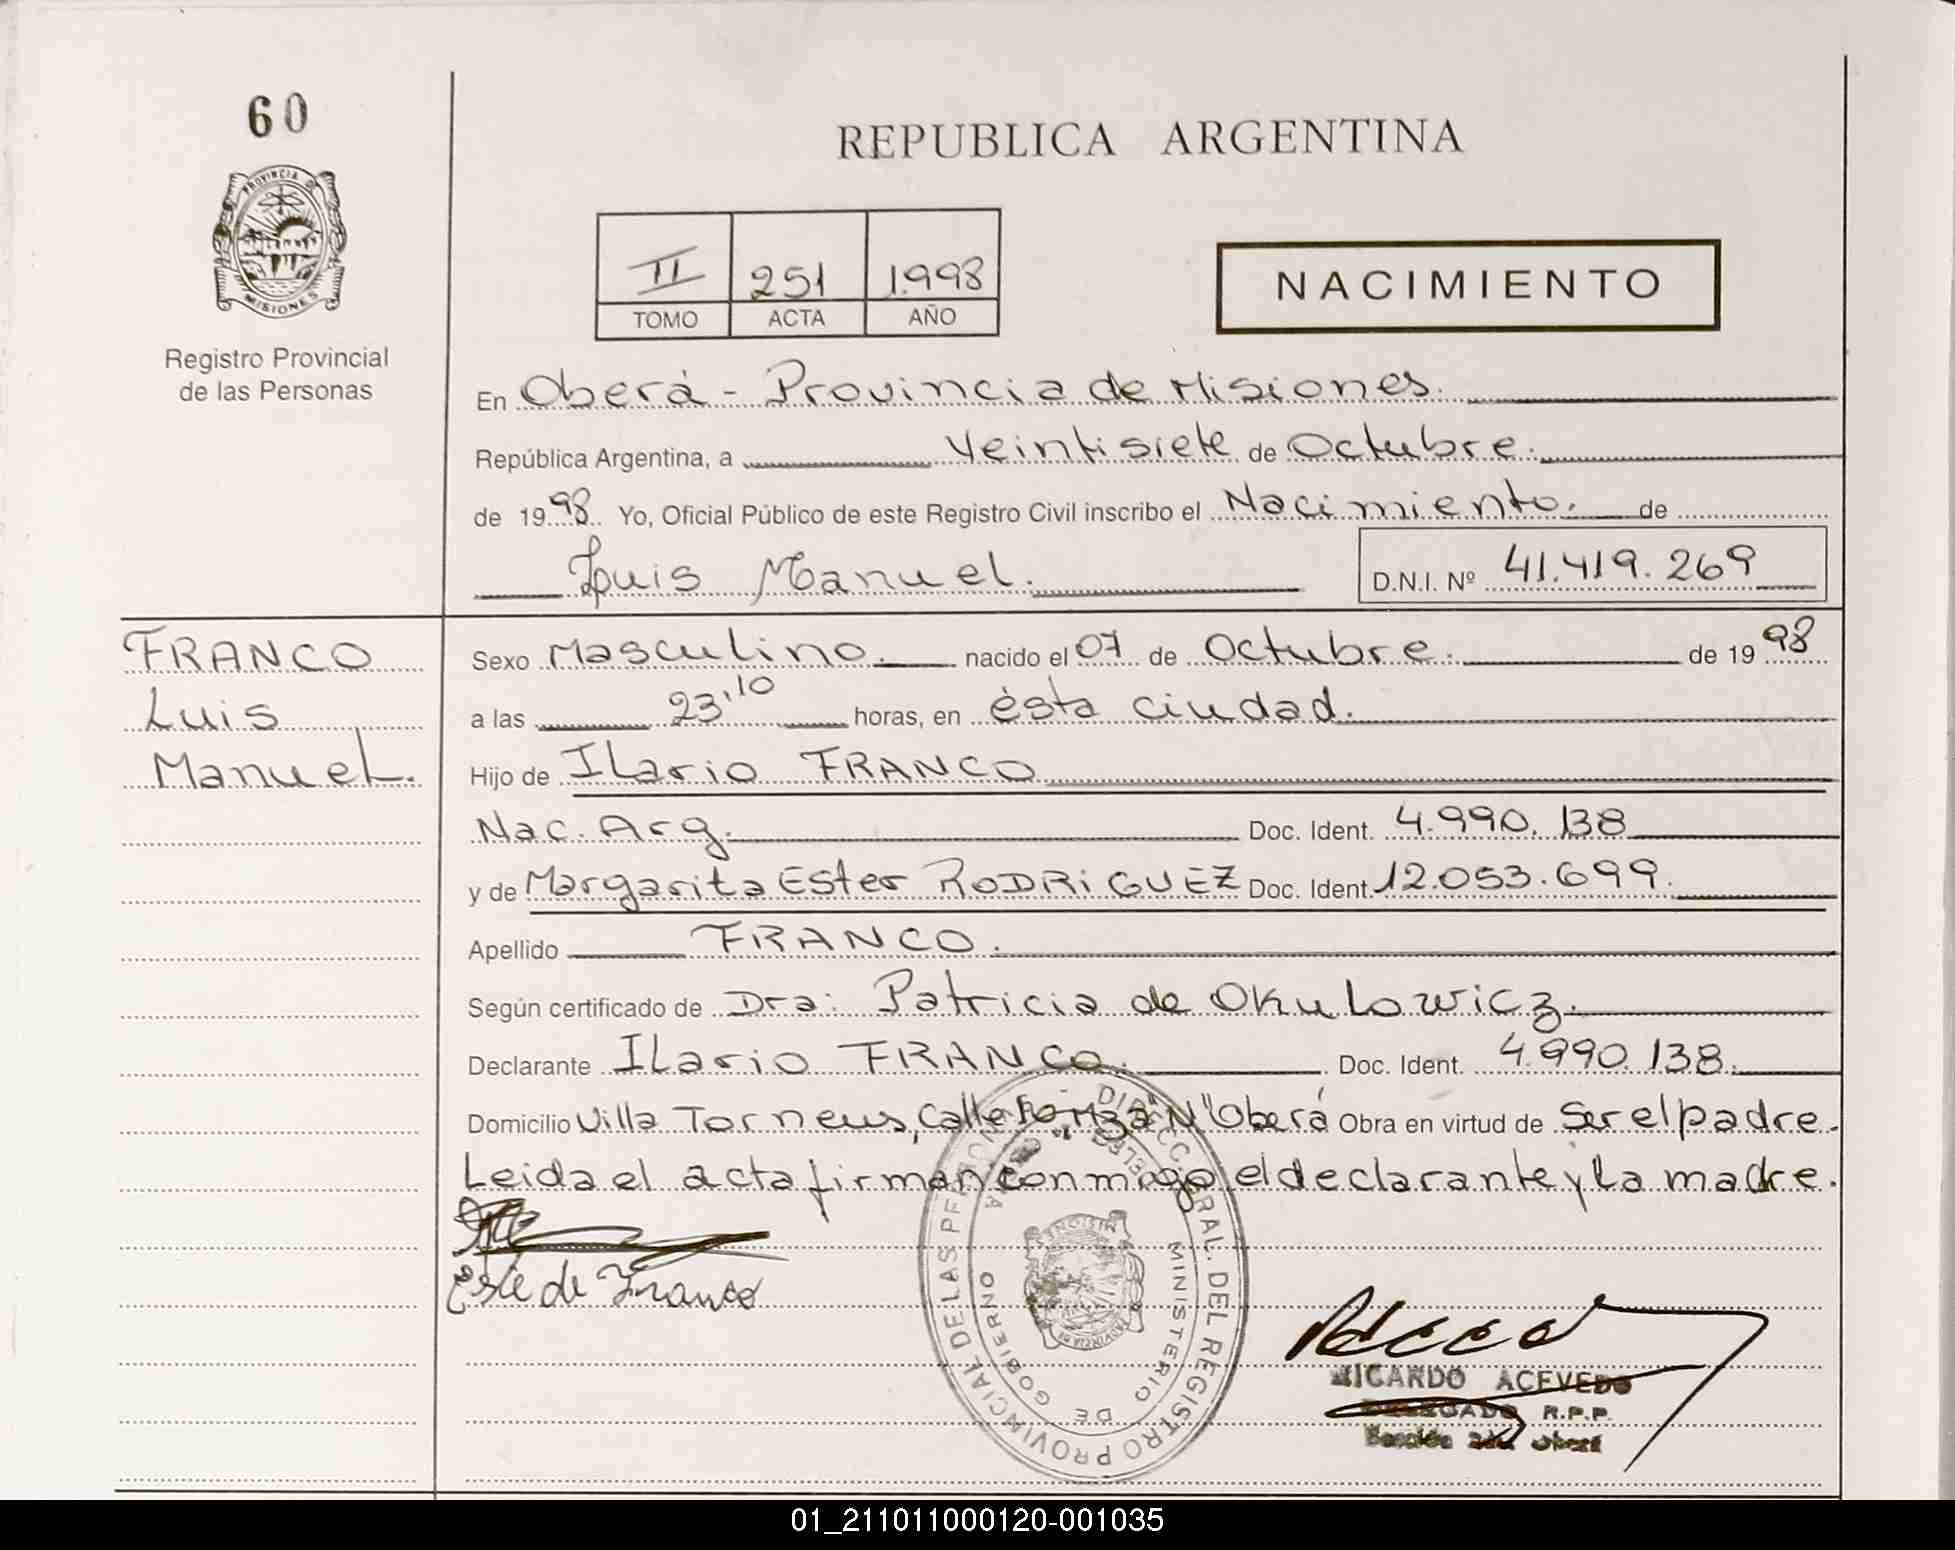 60
PROVINCIA DE
MISIONES
Registro Provincial
de las Personas
REPUBLICA ARGENTINA
II 251 1.998
TOMO ACTA AÑO
NACIMIENTO
En Oberá - Provincia de Misiones.
República Argentina, a Veintisiete de Octubre.
de 1998. Yo, Oficial Público de este Registro Civil inscribo el Nacimiento. de
Luis Manuel.
D.N.I. Nº 41.419.269
FRANCO
Luis
Manuel.
Sexo Masculino. nacido el 07 de Octubre. de 1998
a las 23,10 horas, en ésta ciudad.
Hijo de Ilario FRANCO
Nac. Arg. Doc. Ident. 4.990.138
y de Margarita Ester RODRIGUEZ Doc. Ident. 12.053.699.
Apellido FRANCO.
Según certificado de Dra: Patricia de Okulowicz.
Declarante Ilario FRANCO. Doc. Ident. 4.990.138.
Domicilio Villa Torneus, Calle "N" Oberá Obra en virtud de Ser el padre.
Leida el acta firman conmigo el declarante y la madre.
Este de Franco
DIRECC GRAL. DEL REGISTRO PROVINCIAL DE LAS
MINISTERIO DE GOBIERNO
RICARDO ACEVEDO
DELEGADO R.P.P.
Sección 2da Oberá
01_211011000120-001035